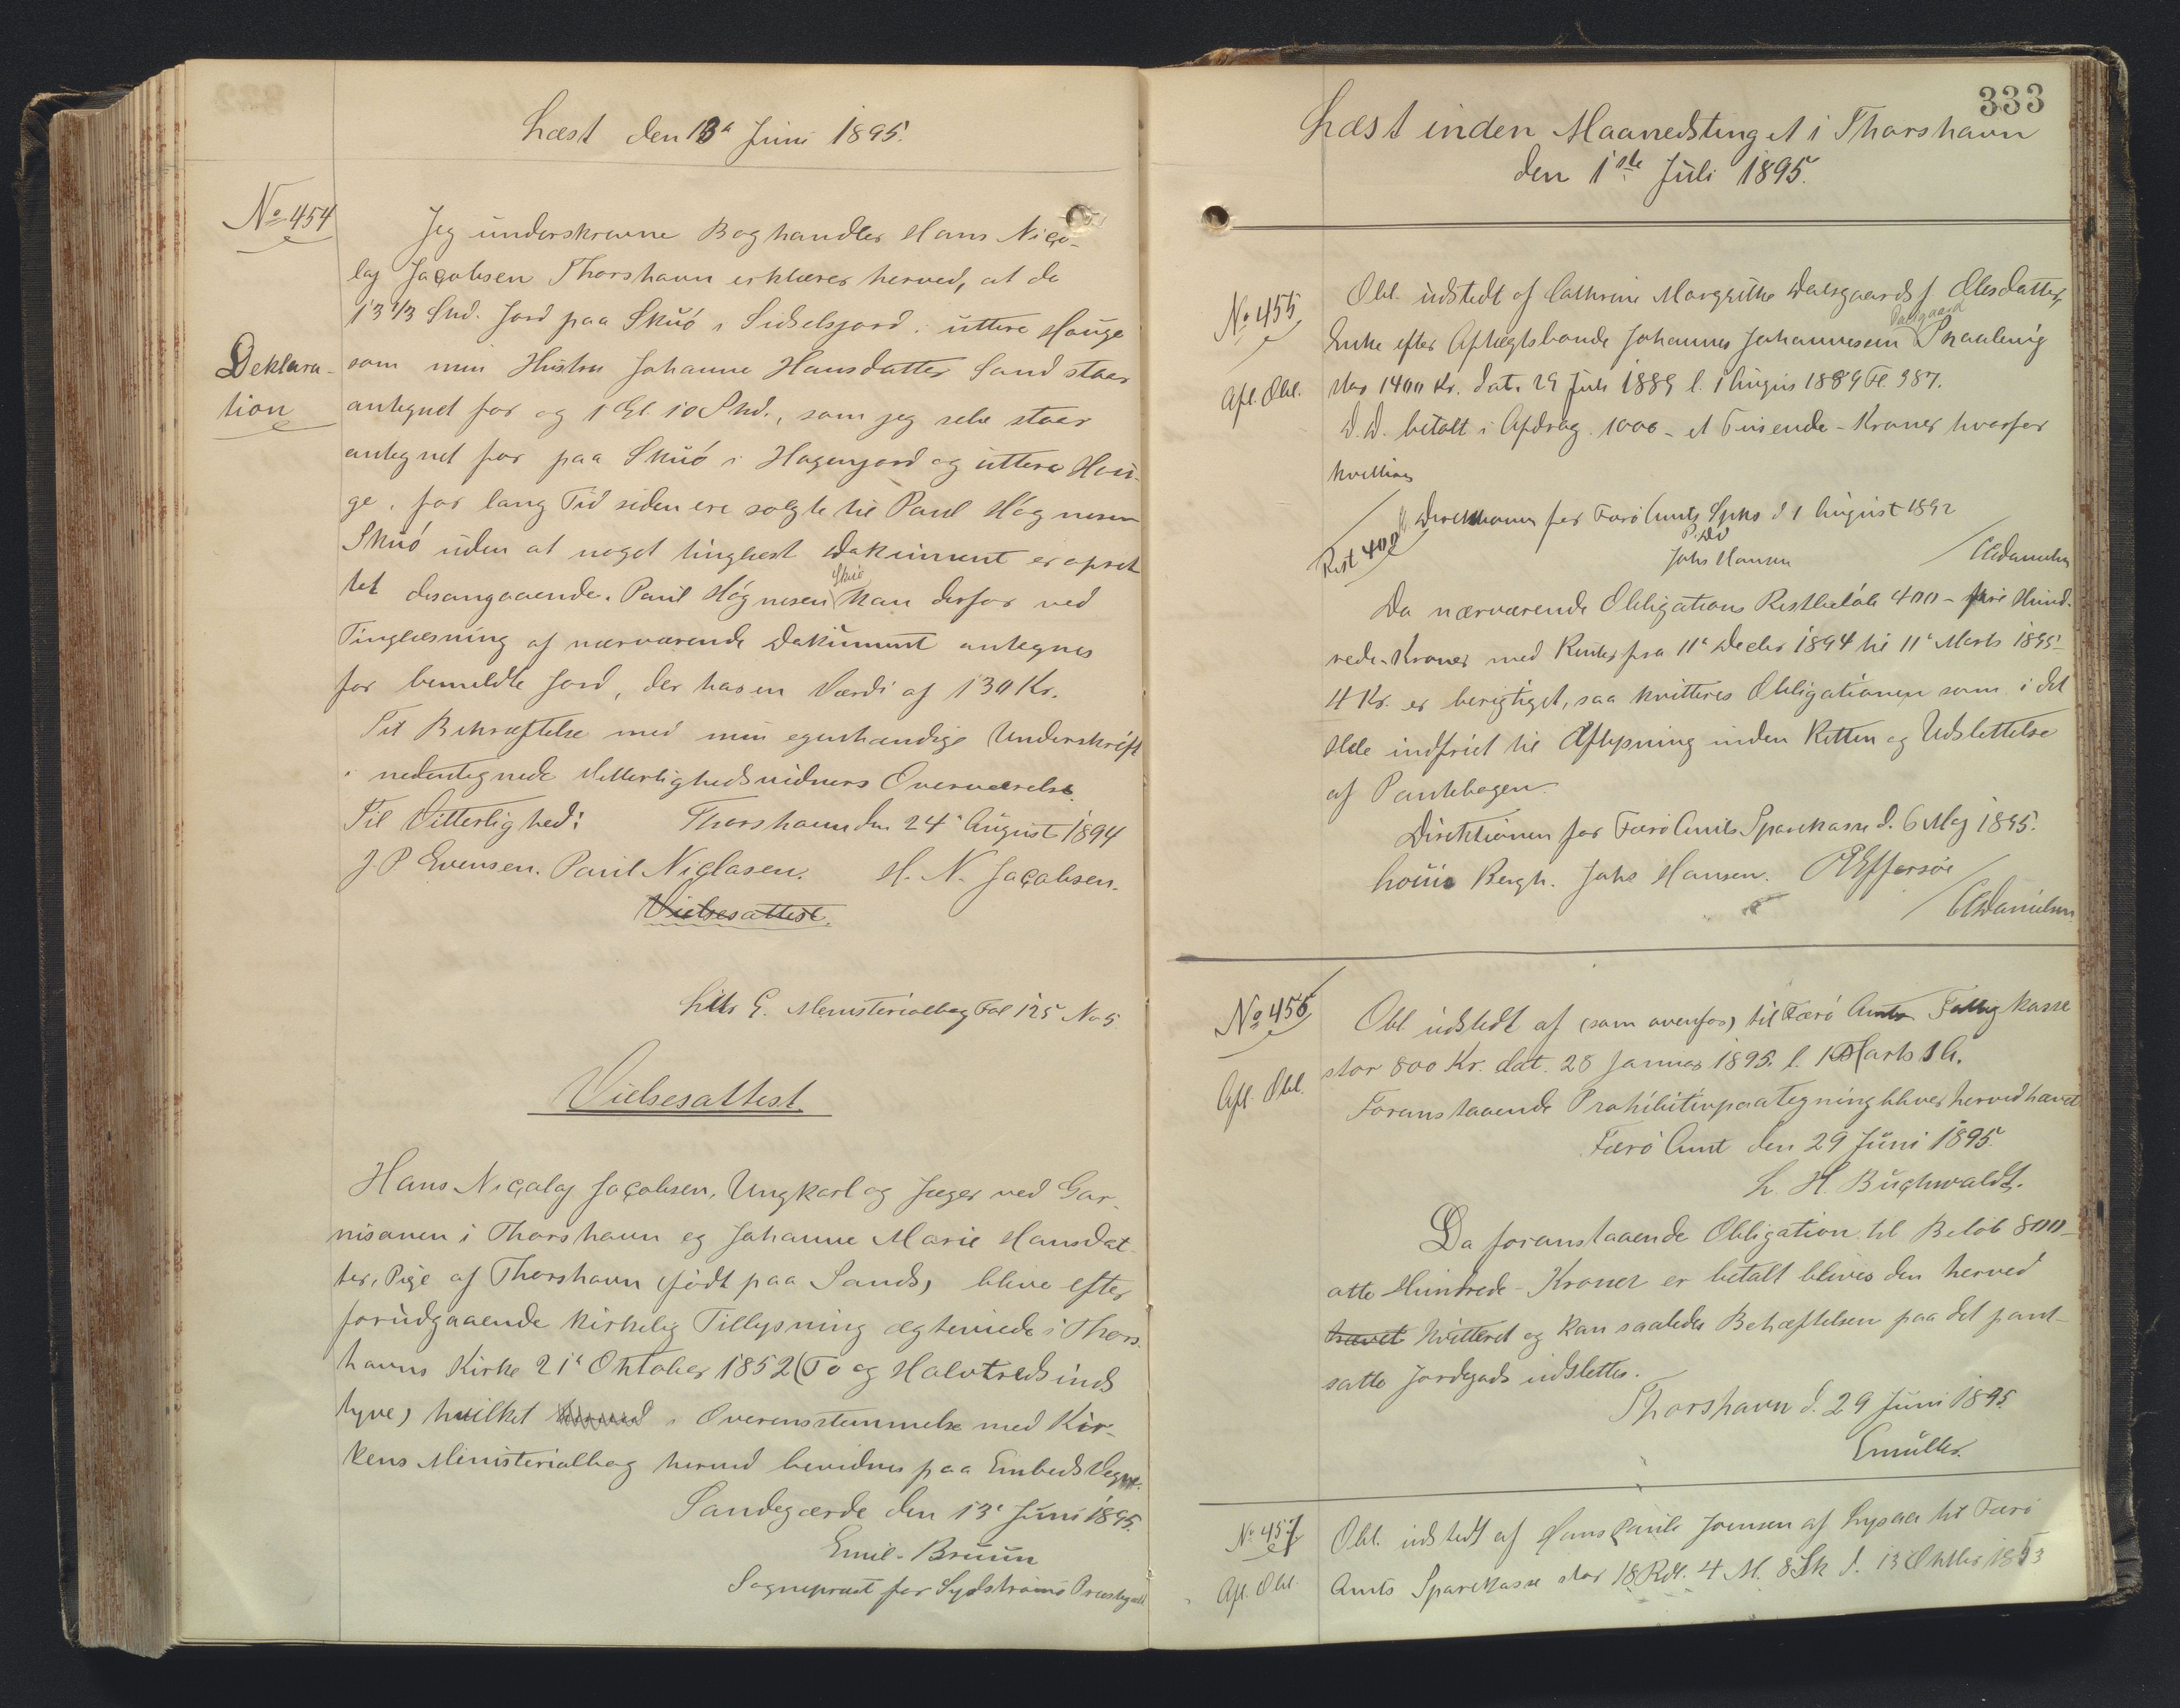 Læst den 13d Juni 1895.
No 454
Jeg underskrevne Boghandler Hans Nico-
laj Jacobsen Thorshavn erklærer herved, at de
13 1/3 Skd. Jord paa Skuö i Sidselsjord i uttere Houge
Deklara-
tion
som min Hustru Johanne Hansdatter Sand staar
antegnet for og 1 Gl. 10 Skd., som jeg selv staar
antegnet for paa Skuö i Hagenjord og uttere Hou-
ge, for lang Tid siden ere solgte til Paul Högnesen
Skuö uden at noget tinglæst Dokument er opret
tet desangaaende. Paul Högnesen Skuö kan derfor ved
Tinglæsning af nærværende Dokument antegnes
for bemeldte Jord, der har en Værdi af 130 Kr.
Til Bekræftelse med min egenhændige Underskrift
i nedentegnede Vitterlighedsvidners Overværelse.
Til Vitterlighed: Thorshavn den 24d August 1894
J. P Evensen. Paul Niclasen. H. N. Jacobsen.
Vielsesattest.
Litr G. Ministerialbog Fol 125 No 5.
Vielsesattest.
Hans Nicolaj Jacobsen, Ungkarl og Jæger ved Gar-
nisonen i Thorshavn og Johanne Marie Hansdat-
ter, Pige af Thorshavn (födt paa Sand), bleve efter
forudgaaende kirkelig Tillysning ægteviede i Thors-
havns Kirke 21d Oktober 1852 (To og Halvtredsinds
tyve) hvilket herved i Overensstemmelse med Kir-
kens Ministerialbog herved bevidnes paa Embeds Vegne.
Sandegærde den 13d Juni 1895.
Emil Bruun
Sognepræst for Sydströmö Præstegjeld
333
Læst inden Maanedstinget i Thorshavn
den 1ste Juli 1895.
No 455
Afl. Obl.
Obl. udstedt af Cathrine Margrethe Dalsgaard f. Olesdatter,
Enke efter Aftægtsbonde Johannes Johannesen Dalsgaard Skaalevig
stor 1400 Kr. dat. 29 Juli 1889 l. 1 August 1889 Fl. 387.
D.D. betalt i Afdrag 1000 - et Tusende - Kroner hvorfor
kvitteres
Rest 400 Kr
Direktionen for Færö Amts Spks d 1 August 1892
P.D.V
Johs Hansen / CADanielsen
Da nærværende Obligations Restbelöb 400 - fire Hund-
rede - Kroner med Renter fra 11d Decbr 1894 til 11d Marts 1895 -
4 Kr. er berigtiget, saa kvitteres Obligationen som i det
Hele indfriet til Aflysning inden Retten og Udslettelse
af Pantebogen.
Direktionen for Færö Amts Sparekasse d. 6 Maj 1895.
Louis Bergh. Johs Hansen. OEffersöe
/ CADanielsen
No 456
Afl. Obl.
Obl udstedt af (som ovenfor) til Færö Amts Fattigkasse
stor 800 Kr. dat. 28 Januar 1895. l. 1 Marts s A.
Foranstaaende Prohibitivpaategning bliver herved hævet
Færö Amt den 29 Juni 1895.
L. H. Buchwaldt.
Da foranstaaende Obligation til Belöb 800 -
otte Hundrede - Kroner er betalt bliver den herved
hævet kvitteret og kan saaledes Behæftelsen paa det pant-
satte Jordegods udslettes.
Thorshavn d. 29 Juni 1895.
EMüller.
No 457
Afl. Obl.
Obl. udstedt af Hans Pauli Joensen af Lysaa til Færö
Amts Sparekasse stor 18 Rdl. 4 M. 8 Sk d. 13 Oktbr 1853